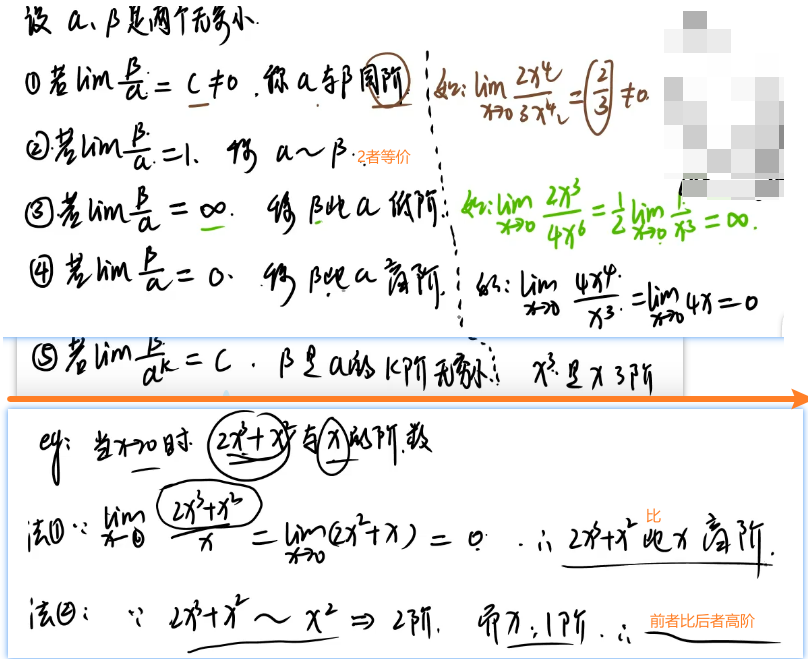 设 α、β是两个无穷小.
①若lim β/α = C ≠0 . 称 α与β同阶 如: lim x→0 2x⁴/3x⁴ = 2/3 ≠0.
②若lim β/α =1. 称 α～β. 2者等价
③若lim β/α = ∞. 称 β比α 低阶. 如: lim x→0 2x³/4x⁶ = 1/2 lim x→0 1/x³ = ∞.
④若lim β/α = 0. 称 β比α高阶. 如: lim x→0 4x⁴/x³ = lim x→0 4x = 0
⑤若lim β/αᵏ = C . β是α的 K阶无穷小. x³是x 3阶
eg: 当x→0时 2x³+x² 与 x 的阶数
法① ∵ lim x→0 2x³+x²/x = lim x→0 (2x²+x) = 0 . ∴ 2x³+x² 比 x 高阶.
比
法②: ∵ 2x³+x² ～ x² ⇒ 2阶. 而x:1阶. ∴ 前者比后者高阶